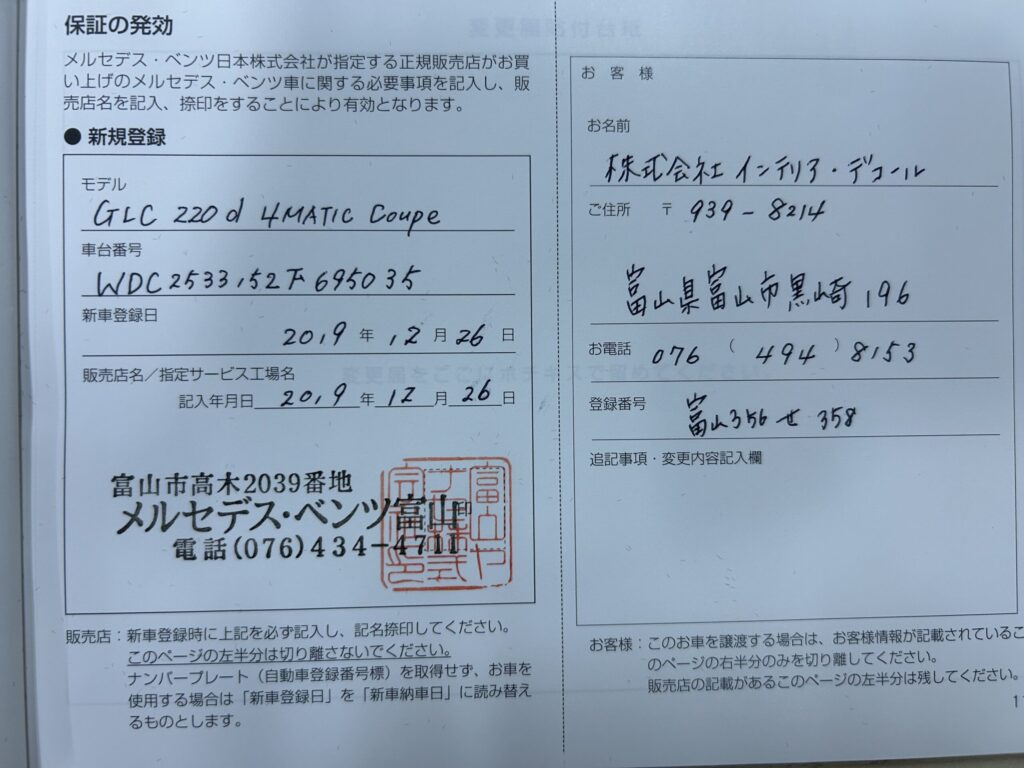 保証の発効
メルセデス・ベンツ日本株式会社が指定する正規販売店がお買
い上げのメルセデス・ベンツ車に関する必要事項を記入し、販
売店名を記入、捺印をすることにより有効となります。
● 新規登録
モデル
GLC 220 d 4MATIC Coupe
車台番号
WDC253315 2F695035
新車登録日
2019 年 12 月 26 日
販売店名／指定サービス工場名
記入年月日 2019 年 12 月 26 日
富山市高木2039番地
メルセデス・ベンツ富山 印
電話(076)434-4711
販売店：新車登録時に上記を必ず記入し、記名捺印してください。
このページの左半分は切り離さないでください。
ナンバープレート（自動車登録番号標）を取得せず、お車を
使用する場合は「新車登録日」を「新車納車日」に読み替え
るものとします。
お客様
お名前
株式会社 インテリア・デコール
ご住所 〒 939-8214
富山県富山市黒崎 196
お電話 076 ( 494 ) 8153
登録番号 富山356 せ 358
追記事項・変更内容記入欄
お客様：このお車を譲渡する場合は、お客様情報が記載されているこ
のページの右半分のみを切り離してください。
販売店の記載があるこのページの左半分は残してください。